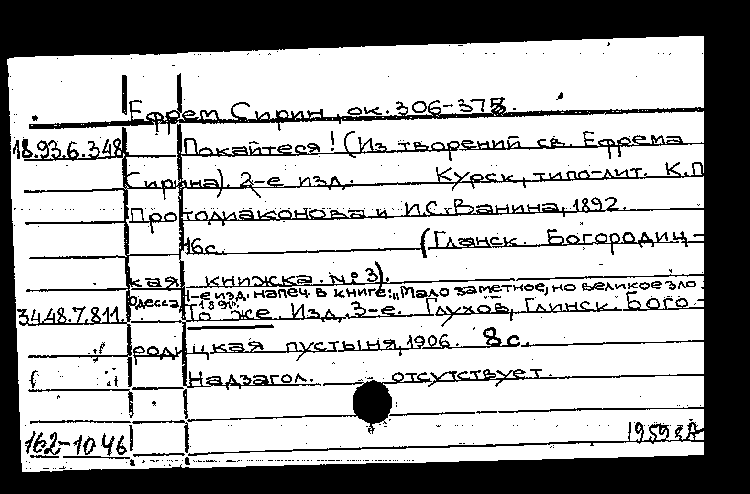 Ефрем Сирин, ок. 306-373.
18.93.6.348. Покайтеся! (Из творений св. Ефрема
Сирина). 2-е изд. Курск, типо-лит. К.П
Протодиаконова и И.С. Ванина, 1892.
16с. (Глинск. Богородиц-
кая книжка. №3).
1-е изд. напеч. в книге: „Мало заметное, но великое зло.
Одесса
34.48.7.811. То же. Изд. 3-е. Глухов, Глинск. Бого-
родицкая пустынь, 1906. 8с.
Надзагол. отсутствует.
162-1046
1959г